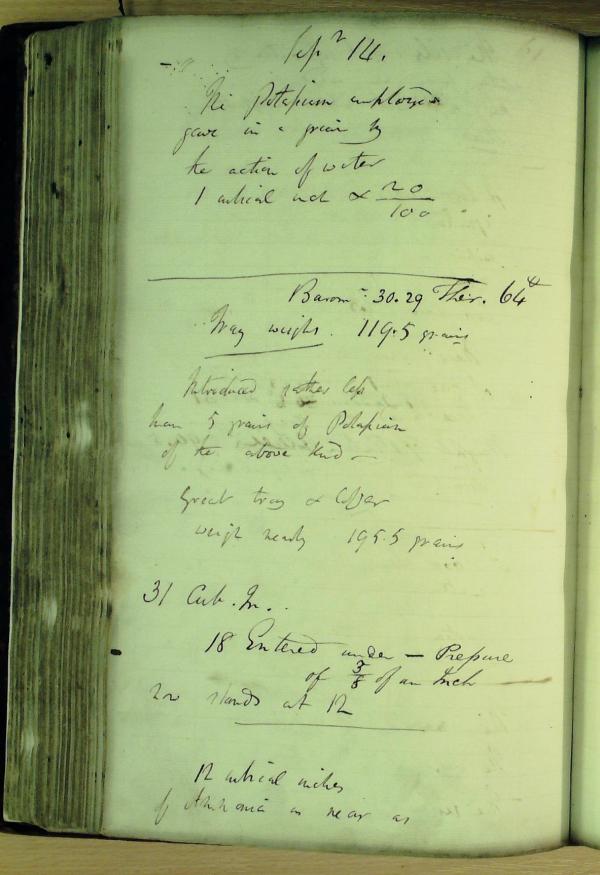 Sepr 14.
The Potassium employed
gave in a grain by
the action of water
1 cubical inch & 20/100
Barom: 30.29 Ther. 64
Tray weighs. 119.5 grains
Introduced rather less
than 5 grains of Potassium
of the above kind –
Great tray & Copper
weigh nearly 195.5 grains
31 Cub. In.
18 Entered under – Pressure
of 3/8 of an Inch
now stands at 12
12 cubical inches
of Ammonia as near as